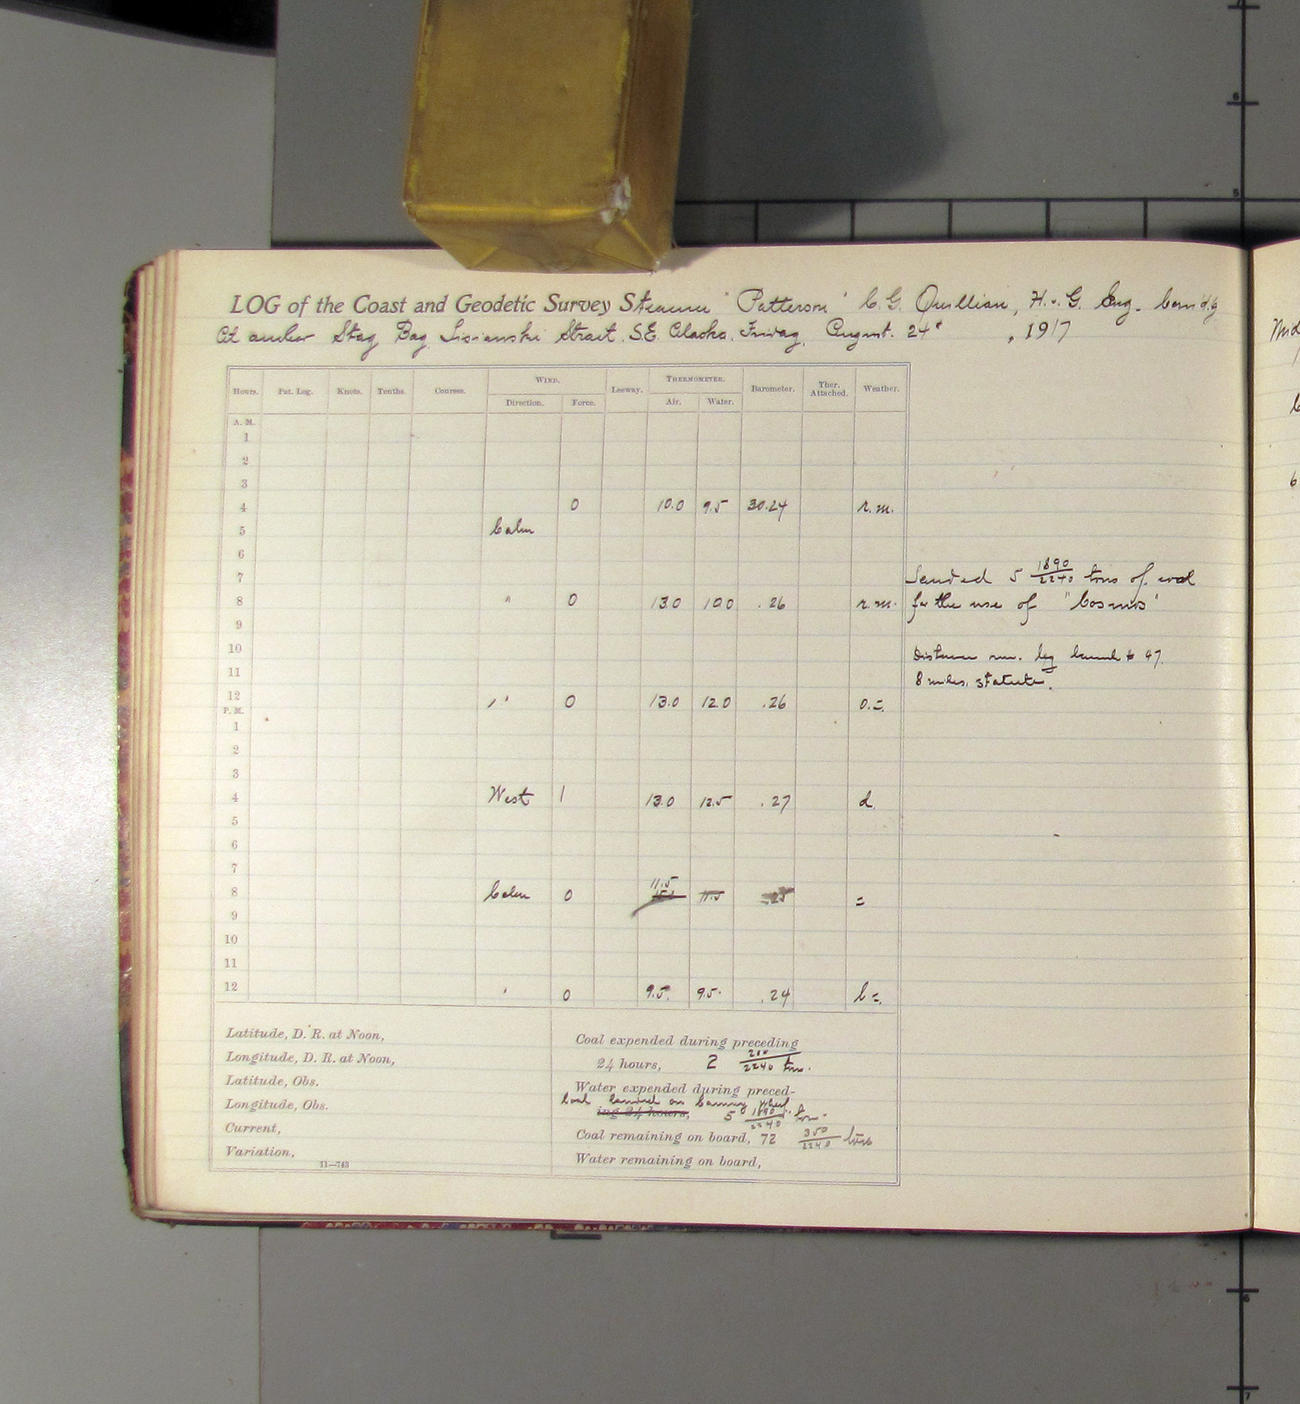 LOG of the Coast and Geodetic Survey Steamer "Patterson" C.G. Quillian, H. & G. Eng. Comd'g
At anchor Stag Bay Lisianski Strait. S.E. Alaska. Friday, August. 24" , 1917
Hours. Pat. Log. Knots. Tenths. Courses. WIND. Leeway. THERMOMETER. Barometer. Ther. Attached. Weather.
Direction. Force. Air. Water.
A. M.
1
2
3
4 0 10.0 9.5 30.24 r.m.
5 Calm
6
7 Landed 5 1890/2240 tons of coal
8 " 0 13.0 10.0 .26 r.m. for the use of "Cosmos"
9
10 Distance run. by launch # 47.
11 8 miles, statute.
12 " 0 13.0 12.0 .26 o.=.
P. M.
1
2
3
4 West 1 13.0 12.5 .27 d.
5
6
7
8 Calm 0 11.5 11.5 =
9
10
11
12 " 0 9.5. 9.5. .24 b=.
Latitude, D. R. at Noon,
Longitude, D. R. at Noon,
Latitude, Obs.
Longitude, Obs.
Current,
Variation,
11—743
Coal expended during preceding
24 hours, 2 /2240 tons.
Water expended during preced-
Coal landed on Wharf
ing 24 hours, 5 1890/2240 tons.
Coal remaining on board, 72 350/2240 tons
Water remaining on board,
6
5
6
7